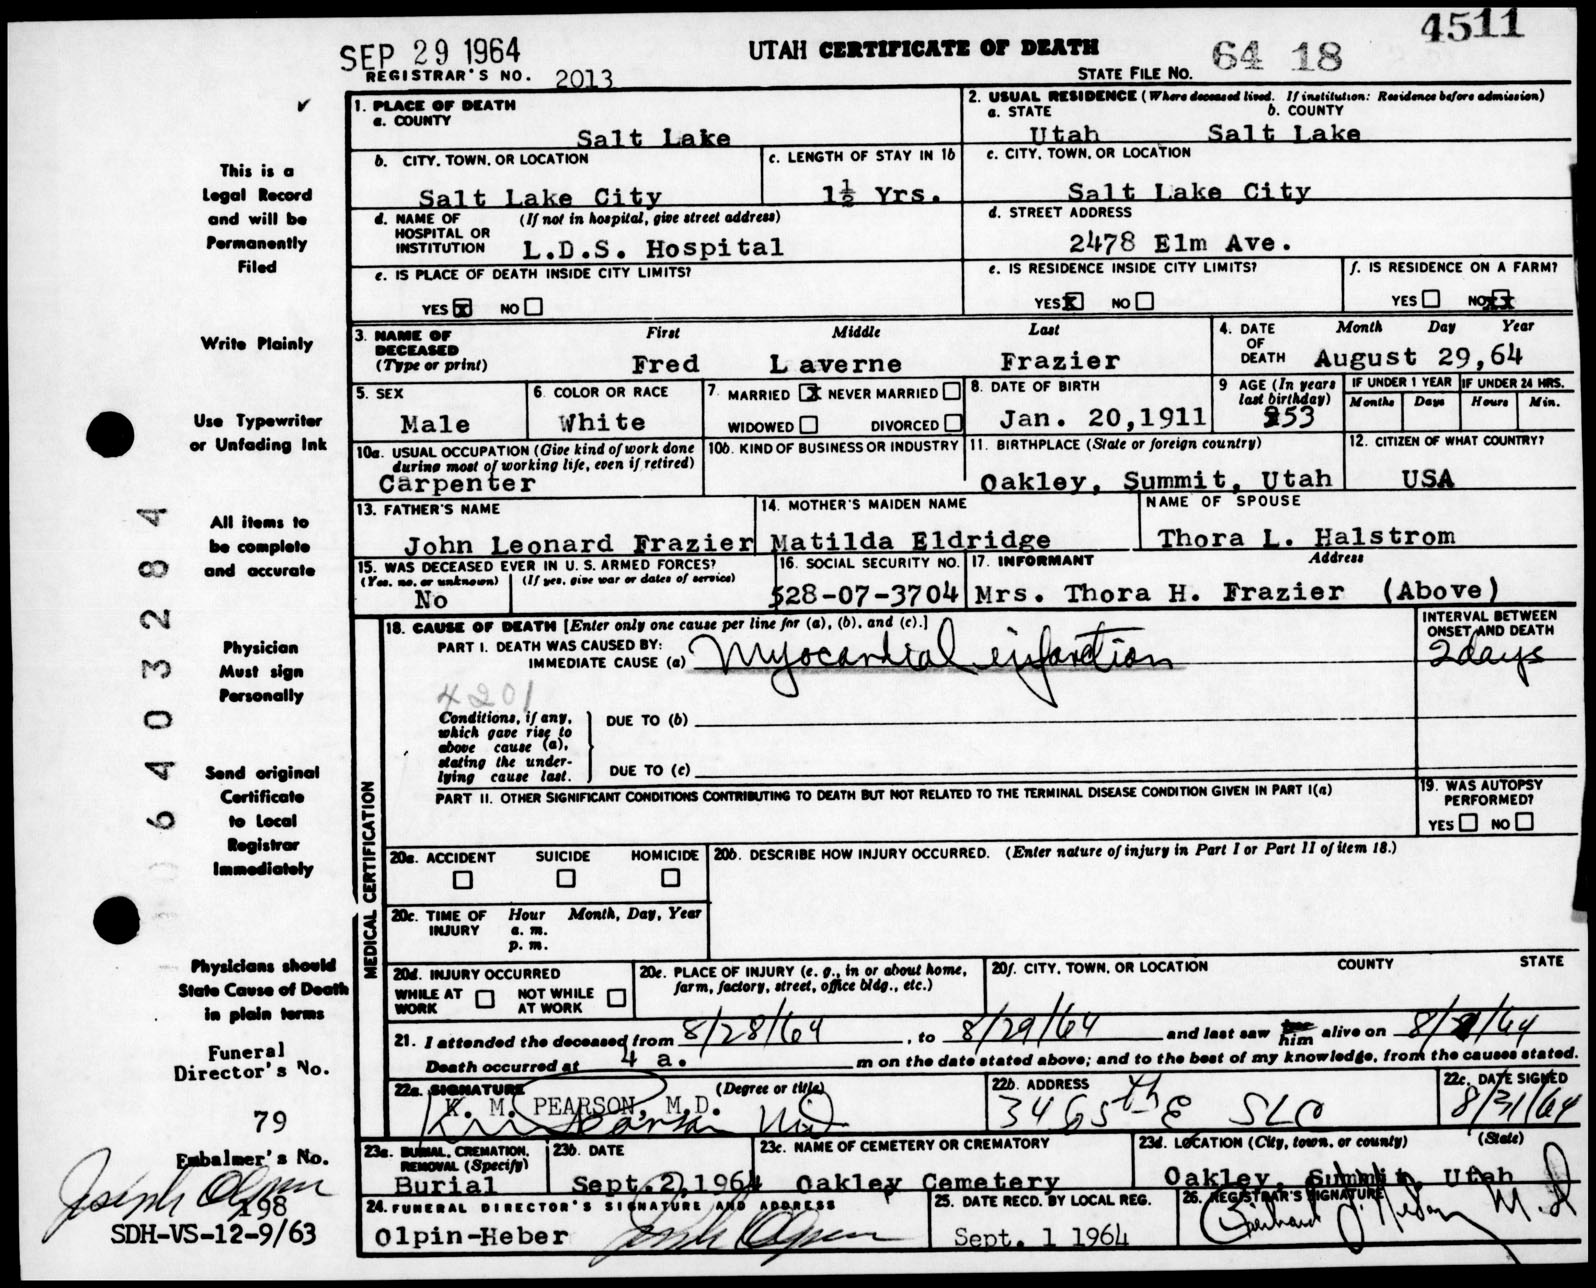 4511
SEP 29 1964
UTAH CERTIFICATE OF DEATH
REGISTRAR'S NO. 2013
STATE FILE NO. 64 18
1. PLACE OF DEATH
a. COUNTY
Salt Lake
2. USUAL RESIDENCE (Where deceased lived. If institution: Residence before admission)
a. STATE b. COUNTY
Utah Salt Lake
b. CITY, TOWN, OR LOCATION
Salt Lake City
c. LENGTH OF STAY IN 1b
1½ Yrs.
c. CITY, TOWN, OR LOCATION
Salt Lake City
d. NAME OF HOSPITAL OR INSTITUTION (If not in hospital, give street address)
L.D.S. Hospital
d. STREET ADDRESS
2478 Elm Ave.
e. IS PLACE OF DEATH INSIDE CITY LIMITS?
YES x NO
e. IS RESIDENCE INSIDE CITY LIMITS?
YES x NO
f. IS RESIDENCE ON A FARM?
YES NO xx
3. NAME OF DECEASED (Type or print)
First Middle Last
Fred Laverne Frazier
4. DATE OF DEATH Month Day Year
August 29,64
5. SEX
Male
6. COLOR OR RACE
White
7. MARRIED x NEVER MARRIED
WIDOWED DIVORCED
8. DATE OF BIRTH
Jan. 20,1911
9 AGE (In years last birthday)
53
IF UNDER 1 YEAR
Months Days
IF UNDER 24 HRS.
Hours Min.
10a. USUAL OCCUPATION (Give kind of work done during most of working life, even if retired)
Carpenter
10b. KIND OF BUSINESS OR INDUSTRY
11. BIRTHPLACE (State or foreign country)
Oakley, Summit, Utah
12. CITIZEN OF WHAT COUNTRY?
USA
13. FATHER'S NAME
John Leonard Frazier
14. MOTHER'S MAIDEN NAME
Matilda Eldridge
NAME OF SPOUSE
Thora L. Halstrom
15. WAS DECEASED EVER IN U. S. ARMED FORCES?
(Yes, no, or unknown) (If yes, give war or dates of service)
No
16. SOCIAL SECURITY NO.
528-07-3704
17. INFORMANT Address
Mrs. Thora H. Frazier (Above)
MEDICAL CERTIFICATION
18. CAUSE OF DEATH [Enter only one cause per line for (a), (b), and (c).]
PART I. DEATH WAS CAUSED BY:
IMMEDIATE CAUSE (a) Myocardial infarction
INTERVAL BETWEEN ONSET AND DEATH
2 days
4201
Conditions, if any, which gave rise to above cause (a), stating the underlying cause last.
DUE TO (b)
DUE TO (c)
PART II. OTHER SIGNIFICANT CONDITIONS CONTRIBUTING TO DEATH BUT NOT RELATED TO THE TERMINAL DISEASE CONDITION GIVEN IN PART I(a)
19. WAS AUTOPSY PERFORMED?
YES NO
20a. ACCIDENT SUICIDE HOMICIDE
20b. DESCRIBE HOW INJURY OCCURRED. (Enter nature of injury in Part I or Part II of item 18.)
20c. TIME OF INJURY Hour Month, Day, Year
a. m.
p. m.
20d. INJURY OCCURRED
WHILE AT WORK NOT WHILE AT WORK
20e. PLACE OF INJURY (e. g., in or about home, farm, factory, street, office bldg., etc.)
20f. CITY, TOWN, OR LOCATION COUNTY STATE
21. I attended the deceased from 8/28/64, to 8/29/64 and last saw him alive on 8/ /64
Death occurred at 4 a. m on the date stated above; and to the best of my knowledge, from the causes stated.
22a. SIGNATURE (Degree or title)
K. M. PEARSON, M.D.
K M Pearson MD
22b. ADDRESS
22c. DATE SIGNED
8/31/64
23a. BURIAL, CREMATION, REMOVAL (Specify)
Burial
23b. DATE
Sept.2,1964
23c. NAME OF CEMETERY OR CREMATORY
Oakley Cemetery
23d. LOCATION (City, town, or county) (State)
Oakley, Summit, Utah
24. FUNERAL DIRECTOR'S SIGNATURE AND ADDRESS
Olpin-Heber Joseph Olpin
25. DATE RECD. BY LOCAL REG.
Sept. 1 1964
26. REGISTRAR'S SIGNATURE
This is a
Legal Record
and will be
Permanently
Filed
Write Plainly
Use Typewriter
or Unfading Ink
All items to
be complete
and accurate
Physician
Must sign
Personally
Send original
Certificate
to Local
Registrar
Immediately
Physicians should
State Cause of Death
in plain terms
Funeral
Director's No.
79
Embalmer's No.
Joseph Olpin
198
SDH-VS-12-9/63
6403284